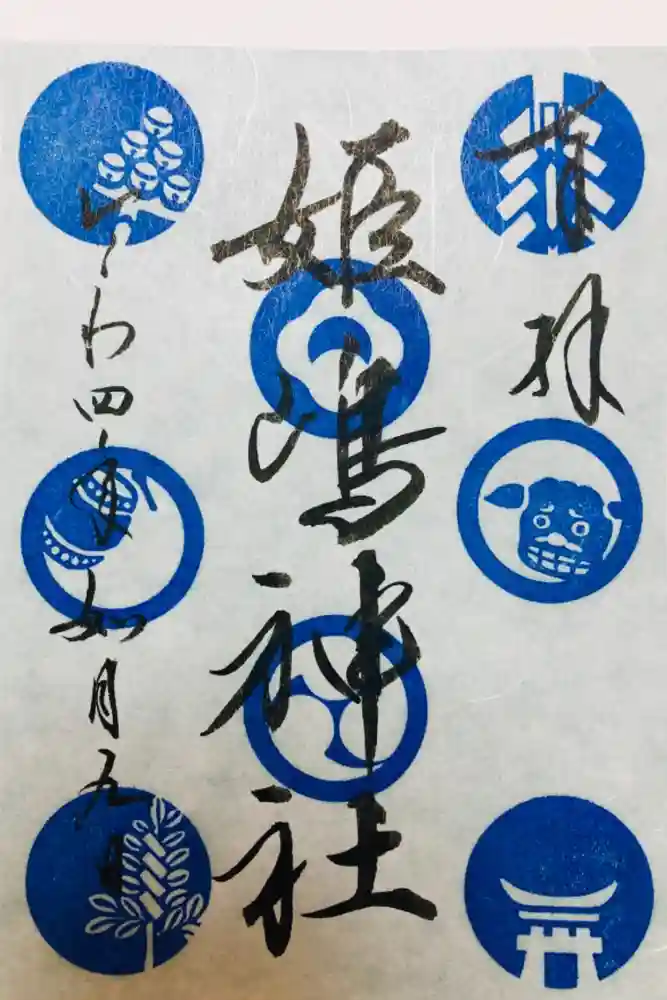 奉拝
姫嶋神社
令和四年如月九日